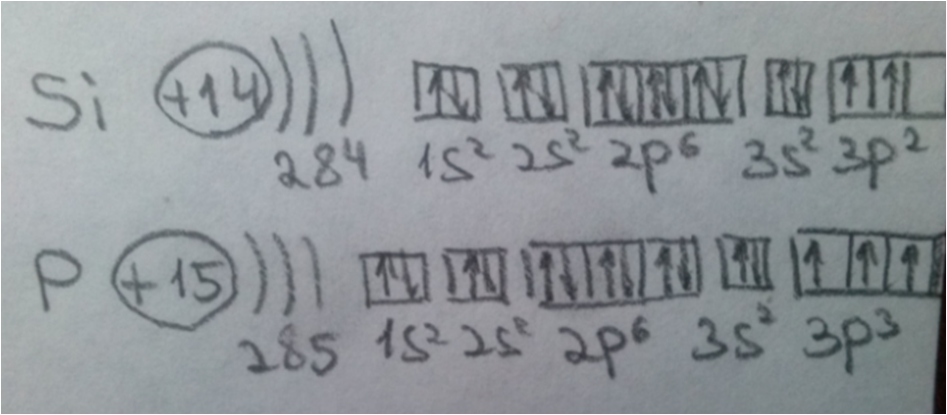 Si +14 ))) ↑↓ ↑↓ ↑↓ ↑↓ ↑↓ ↑↓ ↑ ↑
2 8 4 1s² 2s² 2p⁶ 3s² 3p²
P +15 ))) ↑↓ ↑↓ ↑↓ ↑↓ ↑↓ ↑↓ ↑ ↑ ↑
2 8 5 1s² 2s² 2p⁶ 3s² 3p³